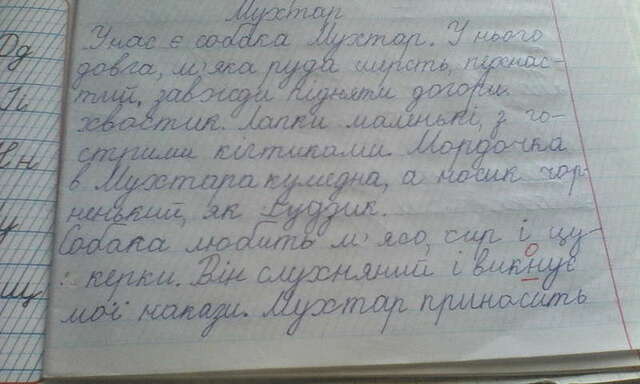 Мухтар
У нас є собака Мухтар. У нього
довга, м'яка руда шерсть, пухнас-
тий, завжди підняти догори
хвостик. Лапки маленькі, з го-
стрими кігтиками. Мордочка
в Мухтара кумедна, а носик чор-
ненький, як ґудзик.
Собака любить м'ясо, сир і цу-
керки. Він слухняний і викнує
о
мої накази. Мухтар приносить
Од
Ін
Нн
У
Щ